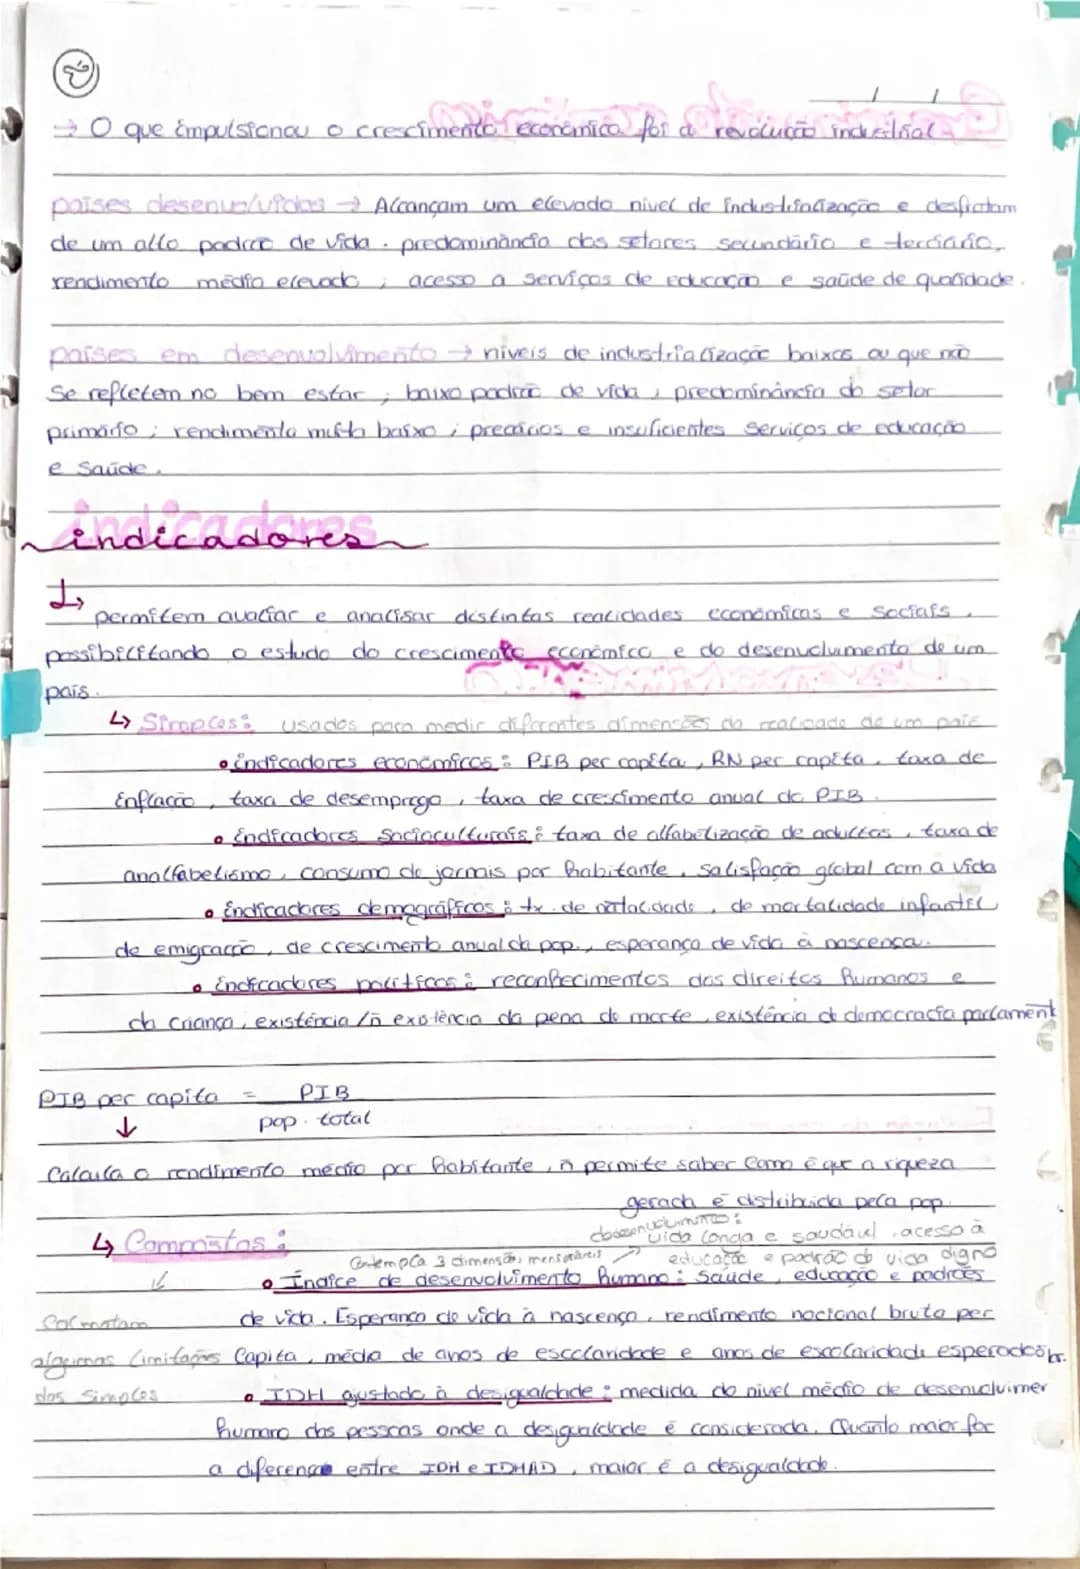 → O que impulsionou o crescimento económico foi a revolução industrial
países desenvolvidos → Alcançam um elevado nivel de industrialização e desfrutam
de um alto padrão de vida. predominância dos setores secundário e terciário,
rendimento médio elevado; acesso a serviços de educação e saúde de qualidade.
países em desenvolvimento → níveis de industrialização baixos ou que não
se refletem no bem estar; baixo padrão de vida; predominância do setor
primário; rendimento muito baixo; precários e insuficientes serviços de educação
e saúde.
indicadores
↳ permitem avaliar e analisar distintas realidades económicas e sociais,
possibilitando o estudo do crescimento económico e do desenvolvimento de um
país.
↳ Simples: usados para medir diferentes dimensões da realidade de um país
• indicadores económicos: PIB per capita, RN per capita, taxa de
inflação, taxa de desemprego, taxa de crescimento anual do PIB.
• indicadores socioculturais: taxa de alfabetização de adultos, taxa de
analfabetismo, consumo de jornais por habitante, satisfação global com a vida
• indicadores demográficos: tx. de natalidade, de mortalidade infantil
de emigração, de crescimento anual da pop., esperança de vida à nascença.
• indicadores políticos: reconhecimentos dos direitos humanos e
da criança, existência/ñ existência da pena de morte, existência de democracia parlament
PIB per capita = PIB
↓ pop. total
Calcula o rendimento médio por habitante, ñ permite saber como é que a riqueza
gerada é distribuida pela pop.
↳ Compostos:
desenvolvimento: vida longa e saudável, acesso à
Contempla 3 dimensões mensuráveis → educação e padrão de vida digno
• Índice de desenvolvimento humano: saúde, educação e padrões
Colmatam de vida. Esperança de vida à nascença, rendimento nacional bruto per
algumas limitações capita, média de anos de escolaridade e anos de escolaridade esperados
dos simples • IDH ajustado à desigualdade: medida do nível médio de desenvolvimen
humano das pessoas onde a desigualdade é considerada. Quanto maior for
a diferença entre IDH e IDHAD, maior é a desigualdade.